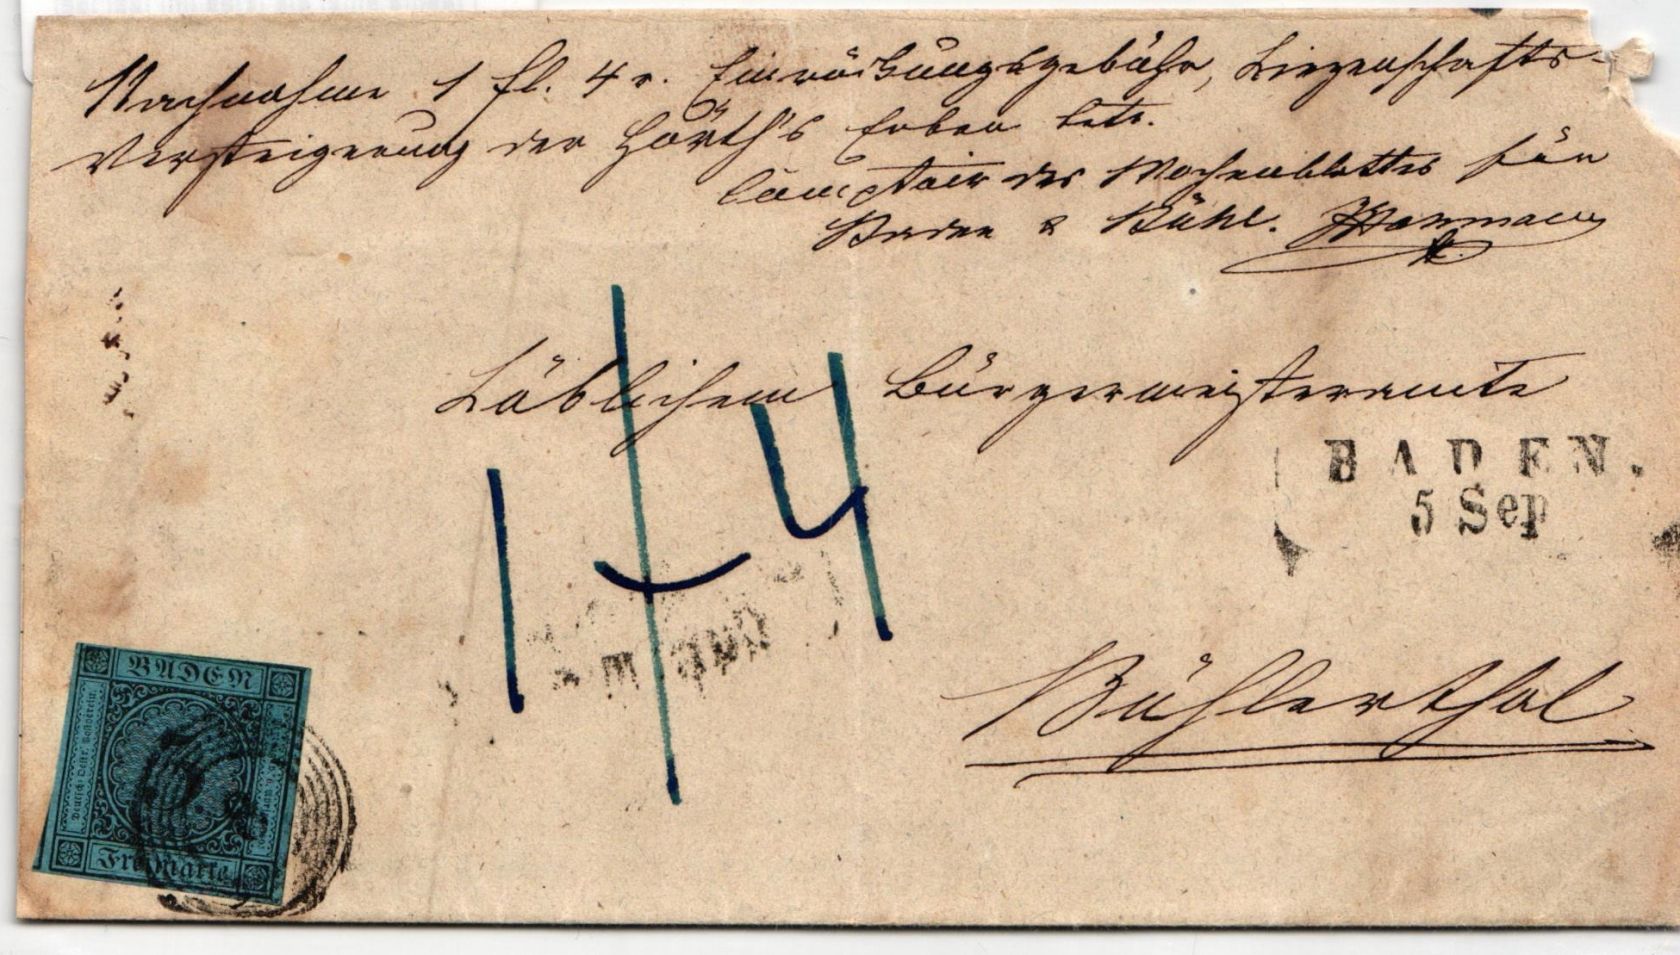 Nachnahme 1 fl. 4 x. Einrückungsgebühr, Liegenschafts-
Versteigerung der Hörth's Erben betr.
Comptoir des Wochenblattes für
Baden & Bühl.
Löblichem Bürgermeisteramte
1 4
BADEN.
5 Sep
Bühlerthal
BADEN
Deutsch-Oestr. Postverein.
Freimarke